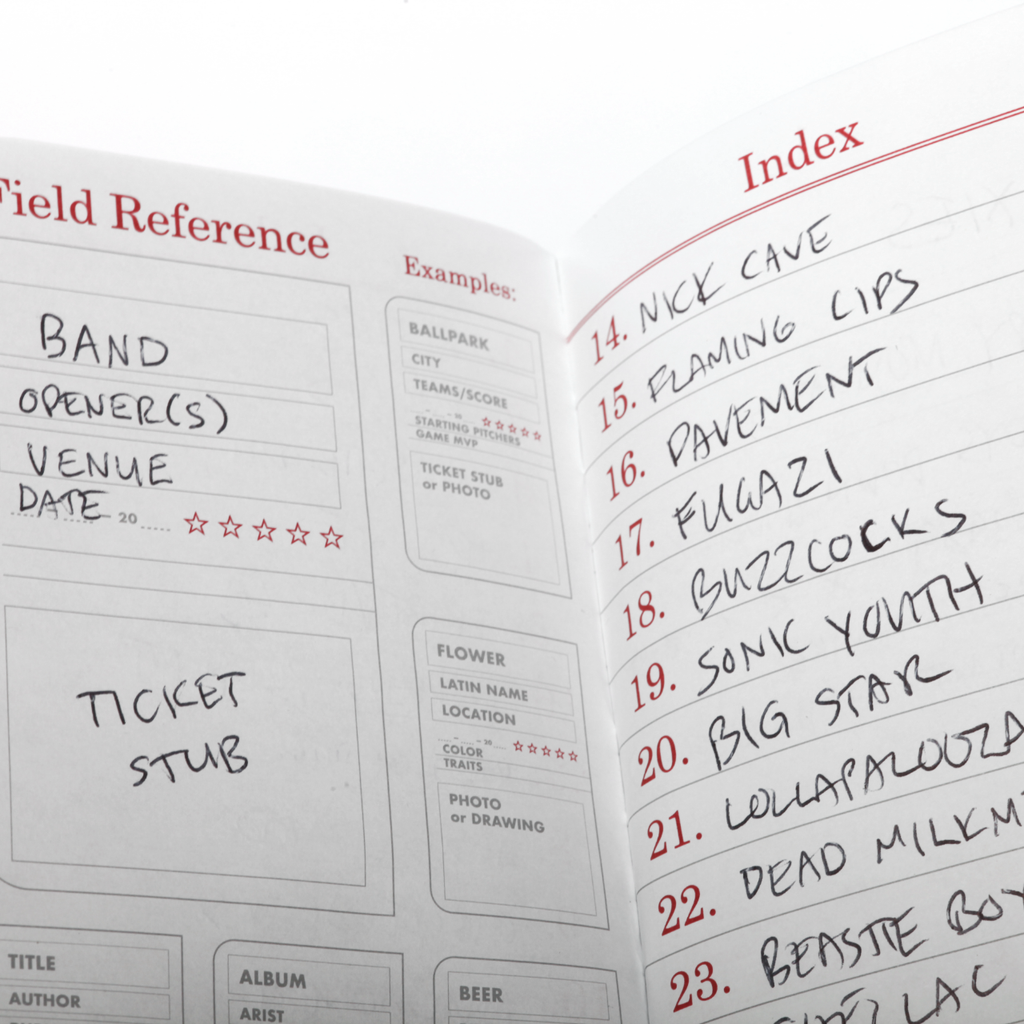 Field Reference
BAND
OPENER(S)
VENUE
DATE 20
TICKET
STUB
Examples:
BALLPARK
CITY
TEAMS/SCORE
20
STARTING PITCHERS
GAME MVP
TICKET STUB
or PHOTO
FLOWER
LATIN NAME
LOCATION
20
COLOR
TRAITS
PHOTO
or DRAWING
TITLE
AUTHOR
ALBUM
ARIST
BEER
Index
14. NICK CAVE
15. FLAMING LIPS
16. PAVEMENT
17. FUGAZI
18. BUZZCOCKS
19. SONIC YOUTH
20. BIG STAR
21. LOLLAPALOOZA
22. DEAD MILKM
23. BEASTIE BOY